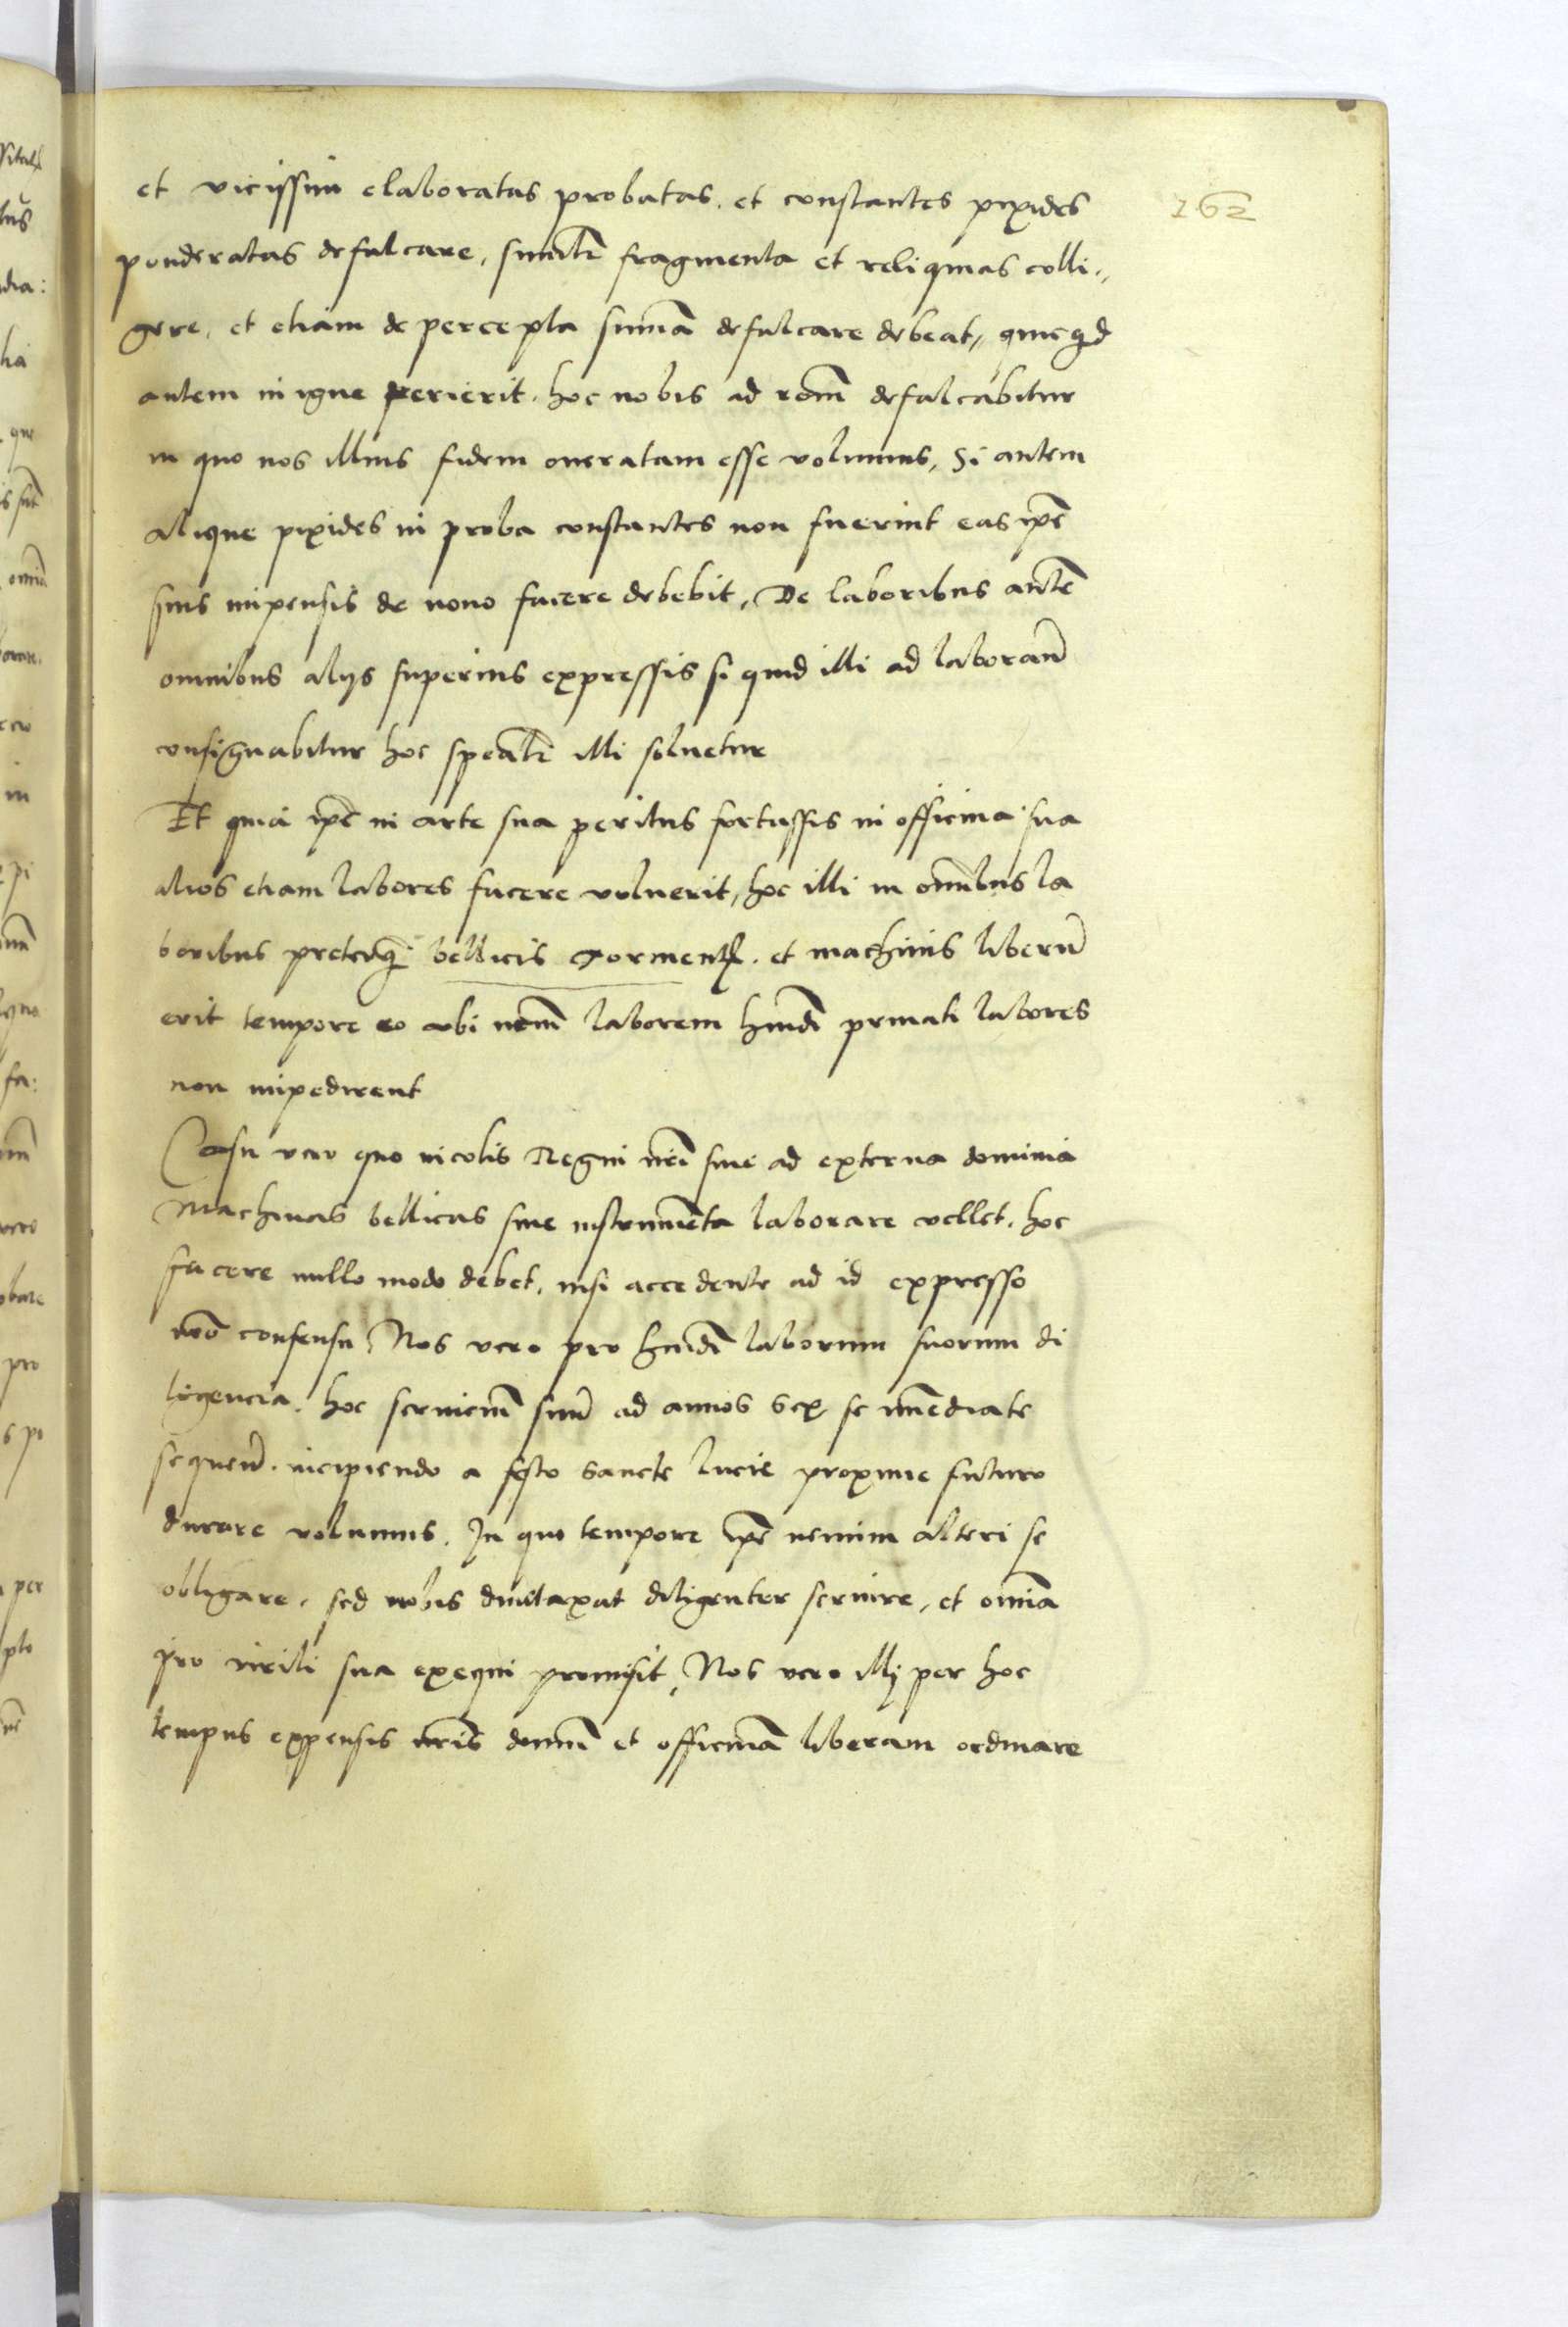 162
et vicissim elaboratas probatas. et constantes pixides
ponderatas defalcare, similr̄ fragmenta et reliquias colli„
gere, et etiam de percepta sum̄a defalcare debeat, quicq̃d
autem in igne perierit. hoc nobis ad rōm̄ defalcabitur
in quo nos illius fidem oneratam esse volumus, Si autem
alique pixides in proba constantes non fuerint eas ip̄e
suis impensis de nouo facere debebit, De laboribus autē
omnibus alijs superius expressis si quid illi ad laborand̄
consignabitur hoc spealr̄ illi soluetur
Et quia ip̄e in arte sua peritus fortassis in officina sua
alios etiam labores facere voluerit, hoc illi in om̄ibus la
boribus preterq̃ bellicis tormentꝭ. et machinis liberū
erit tempore eo vbi nr̄m̄ laborem hmōi priuati labores
non impedirent
Casu vero quo incolis Regni nr̄i siue ad externa dominia
Machinas bellicas siue instrumēta laborare vellet. hoc
facere nullo modo debet, nisi accedente ad id expresso
nr̄o consensu, Nos vero pro hmōi laborum suorum di
ligencia. hoc seruiciū suū ad annos sex se im̄ediate
sequeñ. incipiendo a festo sancte Lucie proxime futuro
durare volumus. In quo tempore ip̄e nemini alteri se
obligare, sed nobis duntaxat diligenter seruire, et om̄ia
pro virili sua exequi promisit, Nos vero illj per hoc
tempus expensis nr̄is domū et officinā liberam ordinare